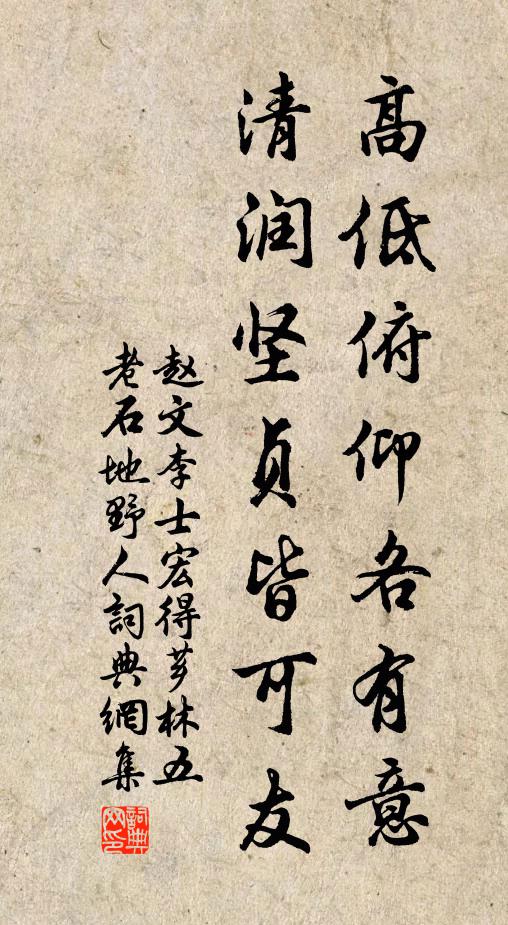 高低俯仰各有意
清润坚贞皆可友
赵文李士宏得芗林五
老石地野人詞典網集
詞典
网印